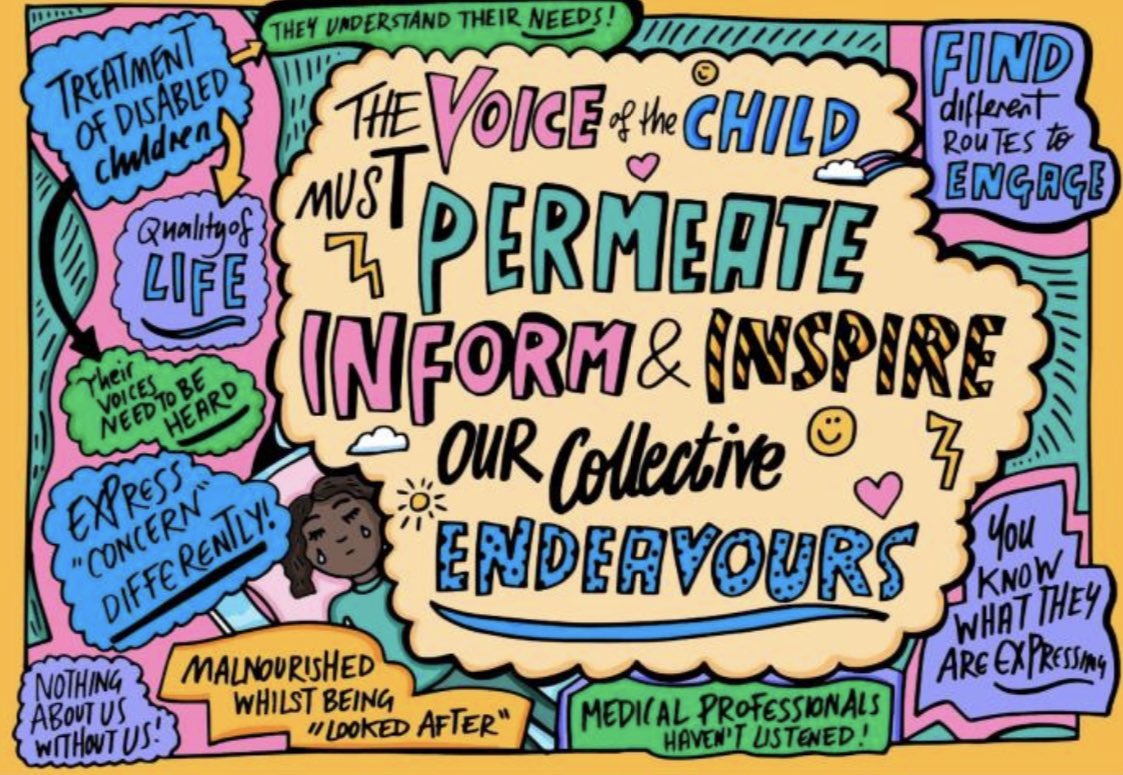 THEY UNDERSTAND THEIR NEEDS!
TREATMENT
OF DISABLED
children
Quality of
LIFE
Their
VOICES
NEED TO BE
HEARD
EXPRESS
"CONCERN"
DIFFERENTLY!
NOTHING
ABOUT US
WITHOUT US!
MALNOURISHED
WHILST BEING
"LOOKED AFTER"
THE VOICE of the CHILD
MUST PERMEATE
INFORM & INSPIRE
OUR Collective
ENDEAVOURS
MEDICAL PROFESSIONALS
HAVEN'T LISTENED!
FIND
different
ROUTES to
ENGAGE
YOU
KNOW
WHAT THEY
ARE EXPRESSING